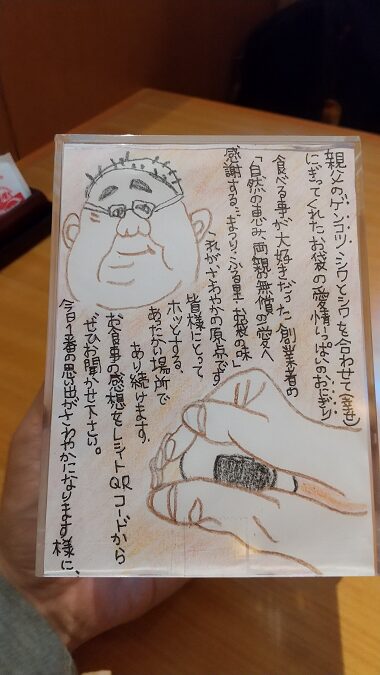 親父のゲンコツ、シワとシワを合わせて(幸せ)
にぎってくれたお袋の愛情いっぱいのおにぎり
食べる事が大好きだった創業者の
「自然の恵み、両親の無償の愛へ
感謝する…まつり・ふる里・お袋の味」
、我がさわやかの原点です
皆様にとって、
ホッとする、
あたたかい場所で
あり続けます。
お食事の感想をレシートQRコードから
ぜひお聞かせ下さい。
今日1番の思い出がさわやかになります様に、